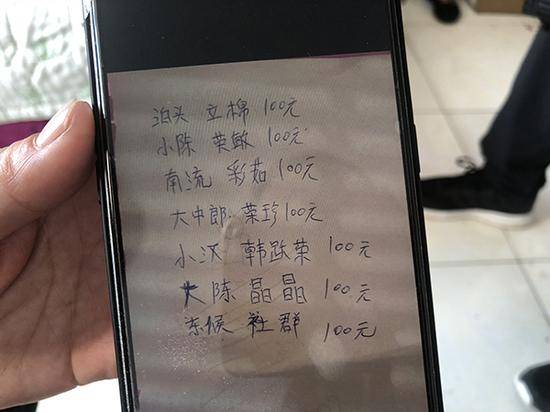 泊头 立棉 100元
小陈 英敏 100元
南流 彩茹 100元
大中郎 荣珍 100元
小汉 韩跃荣 100元
大陈 晶晶 100元
东候 社群 100元